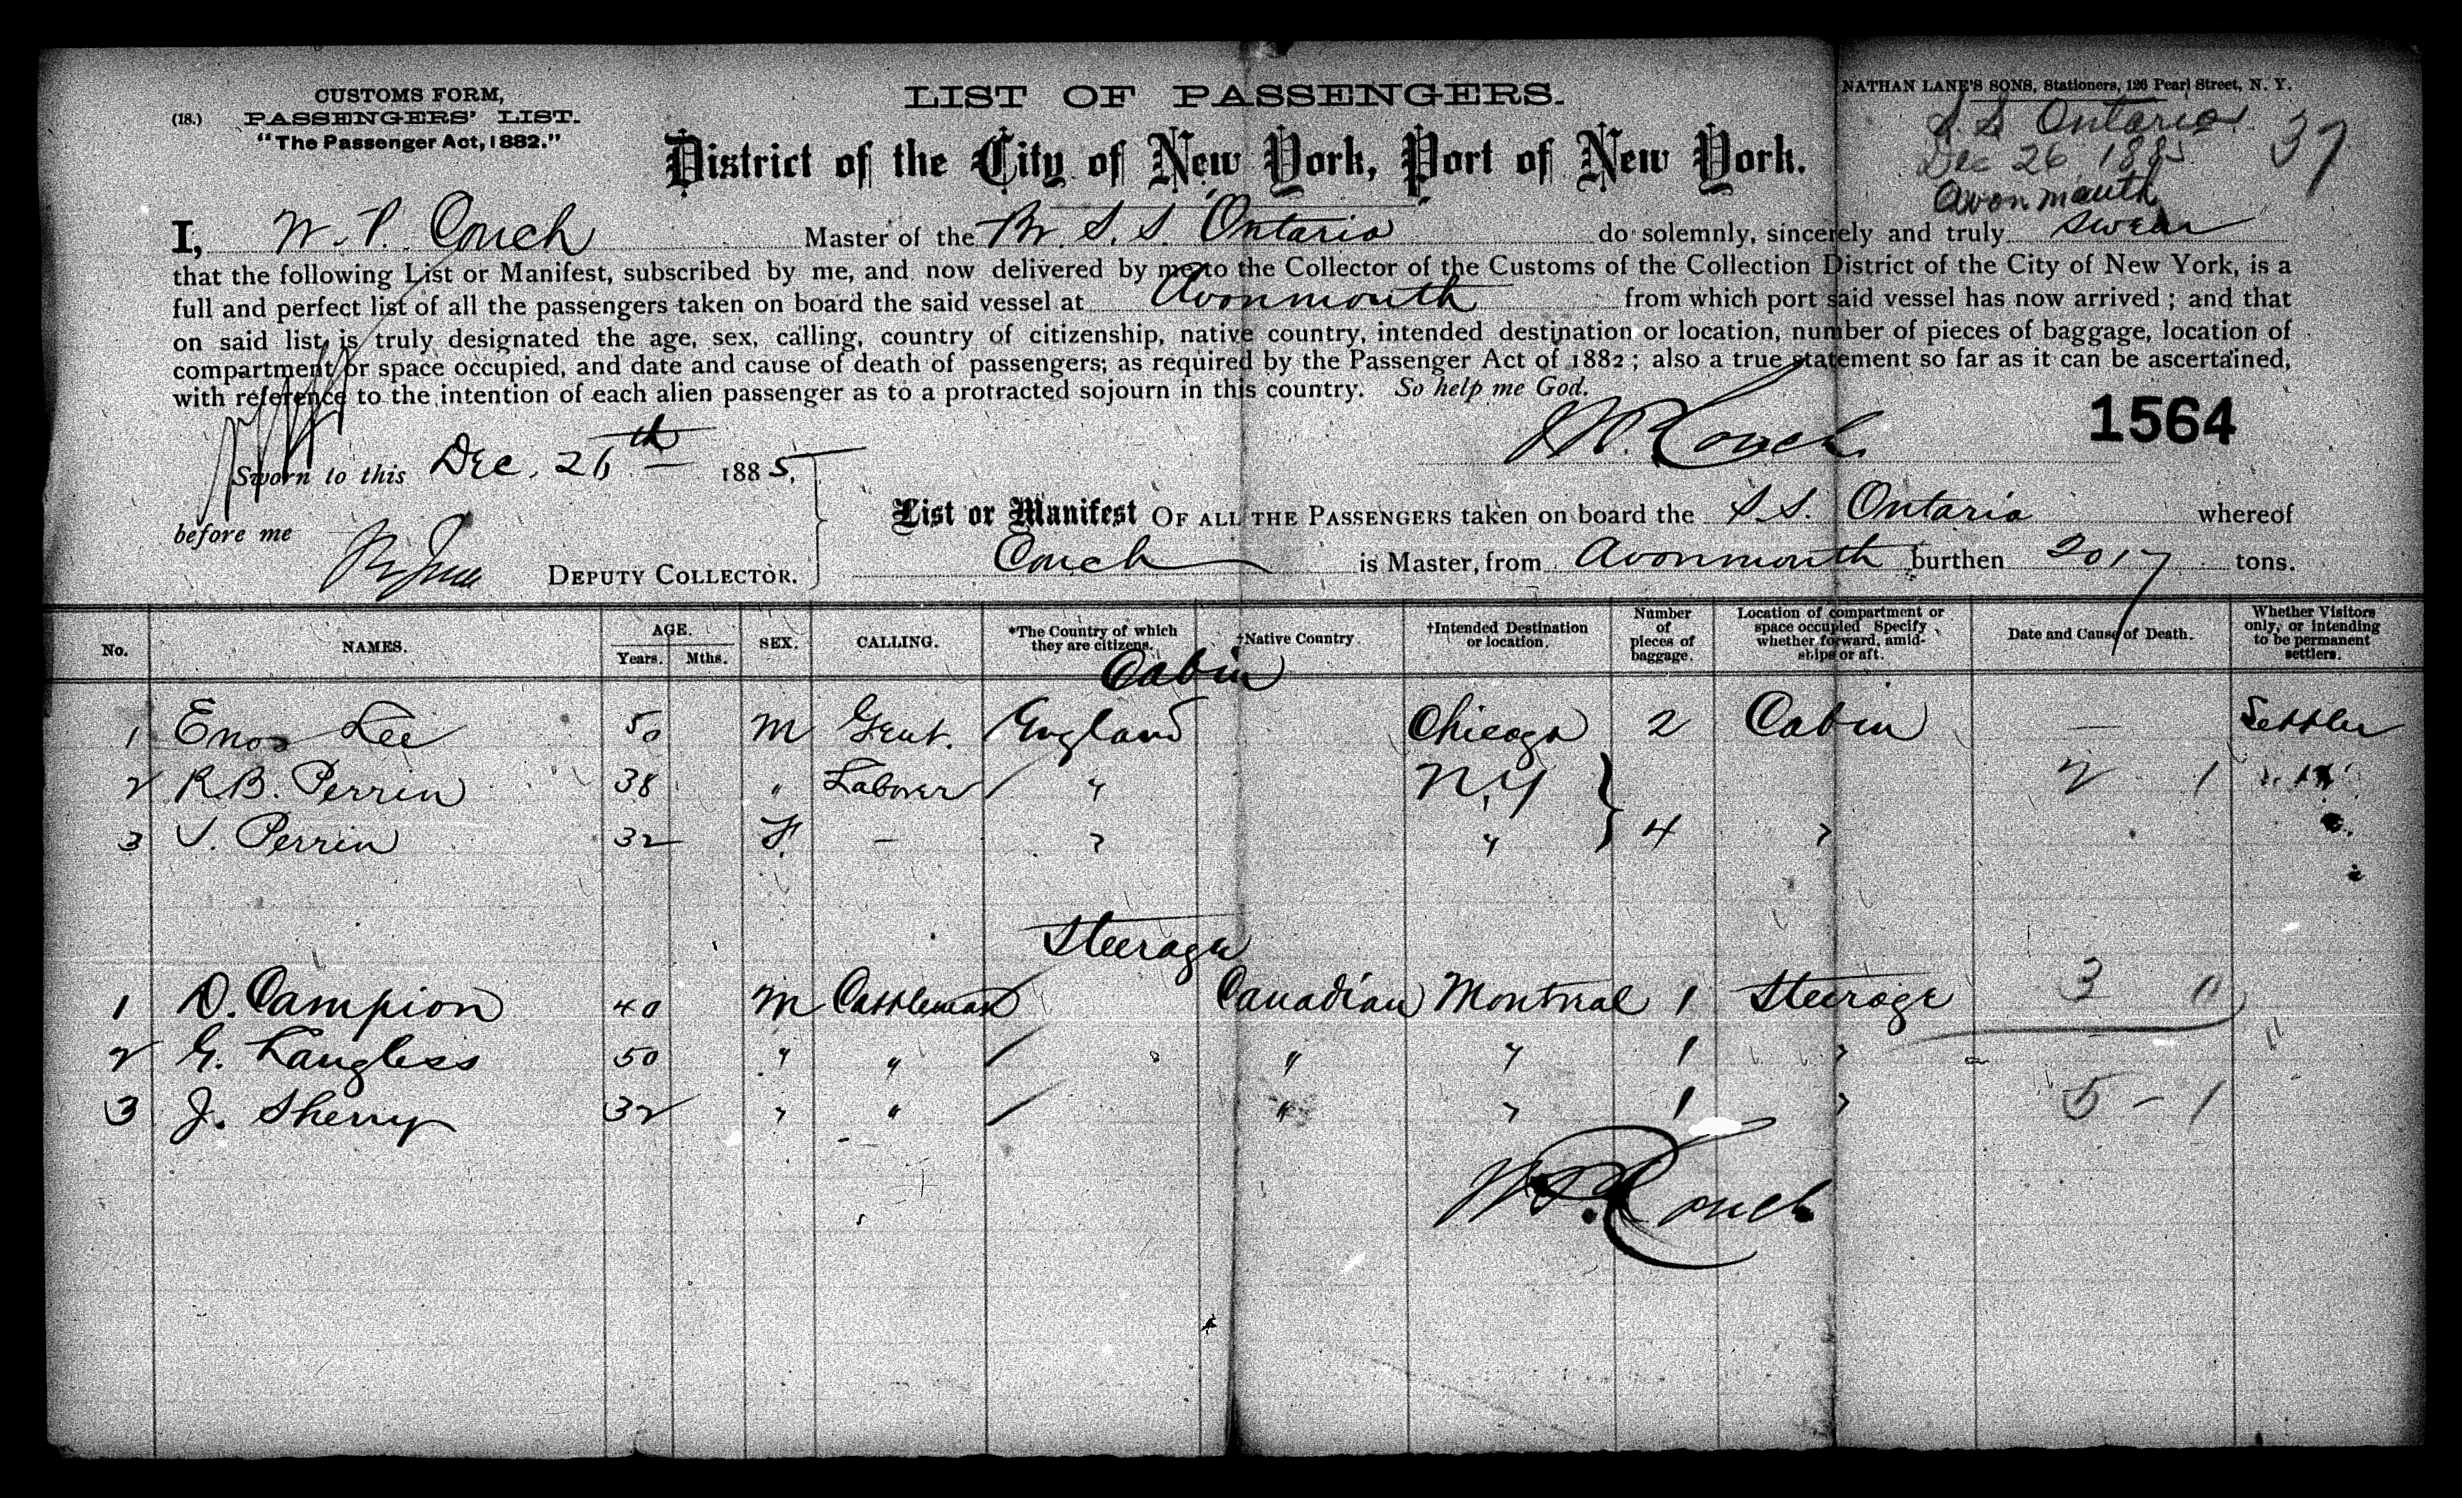 CUSTOMS FORM,
(18.) PASSENGERS' LIST.
"The Passenger Act, 1882."
LIST OF PASSENGERS.
District of the City of New York, Port of New York.
NATHAN LANE'S SONS, Stationers, 126 Pearl Street, N. Y.
S.S. Ontario 37
Dec 26 1885
Avonmouth
I, W. P. Couch Master of the Br. S.S. Ontario do solemnly, sincerely and truly swear
that the following List or Manifest, subscribed by me, and now delivered by me to the Collector of the Customs of the Collection District of the City of New York, is a
full and perfect list of all the passengers taken on board the said vessel at Avonmouth from which port said vessel has now arrived; and that
on said list is truly designated the age, sex, calling, country of citizenship, native country, intended destination or location, number of pieces of baggage, location of
compartment or space occupied, and date and cause of death of passengers; as required by the Passenger Act of 1882; also a true statement so far as it can be ascertained,
with reference to the intention of each alien passenger as to a protracted sojourn in this country. So help me God.
W.P. Couch 1564
Sworn to this Dec. 26th 1885,
before me
DEPUTY COLLECTOR.
List or Manifest OF ALL THE PASSENGERS taken on board the S.S. Ontario whereof
Couch is Master, from Avonmouth burthen 2017 tons.
No. NAMES. AGE. Years. Mths. SEX. CALLING. *The Country of which they are citizens. †Native Country. †Intended Destination or location. Number of pieces of baggage. Location of compartment or space occupied Specify whether forward, amidships or aft. Date and Cause of Death. Whether Visitors only, or intending to be permanent settlers.
Cabin
1 Enos Lee 50 M Gent. England Chicago 2 Cabin — Settler
2 R.B. Perrin 38 " Laborer " N.Y 2 1
3 J. Perrin 32 F. — " " 4 "
Steerage
1 D. Campion 40 M Cattleman Canadian Montreal 1 Steerage 3 11
2 G. Langless 50 " " " " 1 "
3 J. Sherry 32 " " " " 1 " 5 - 1
W.P. Couch